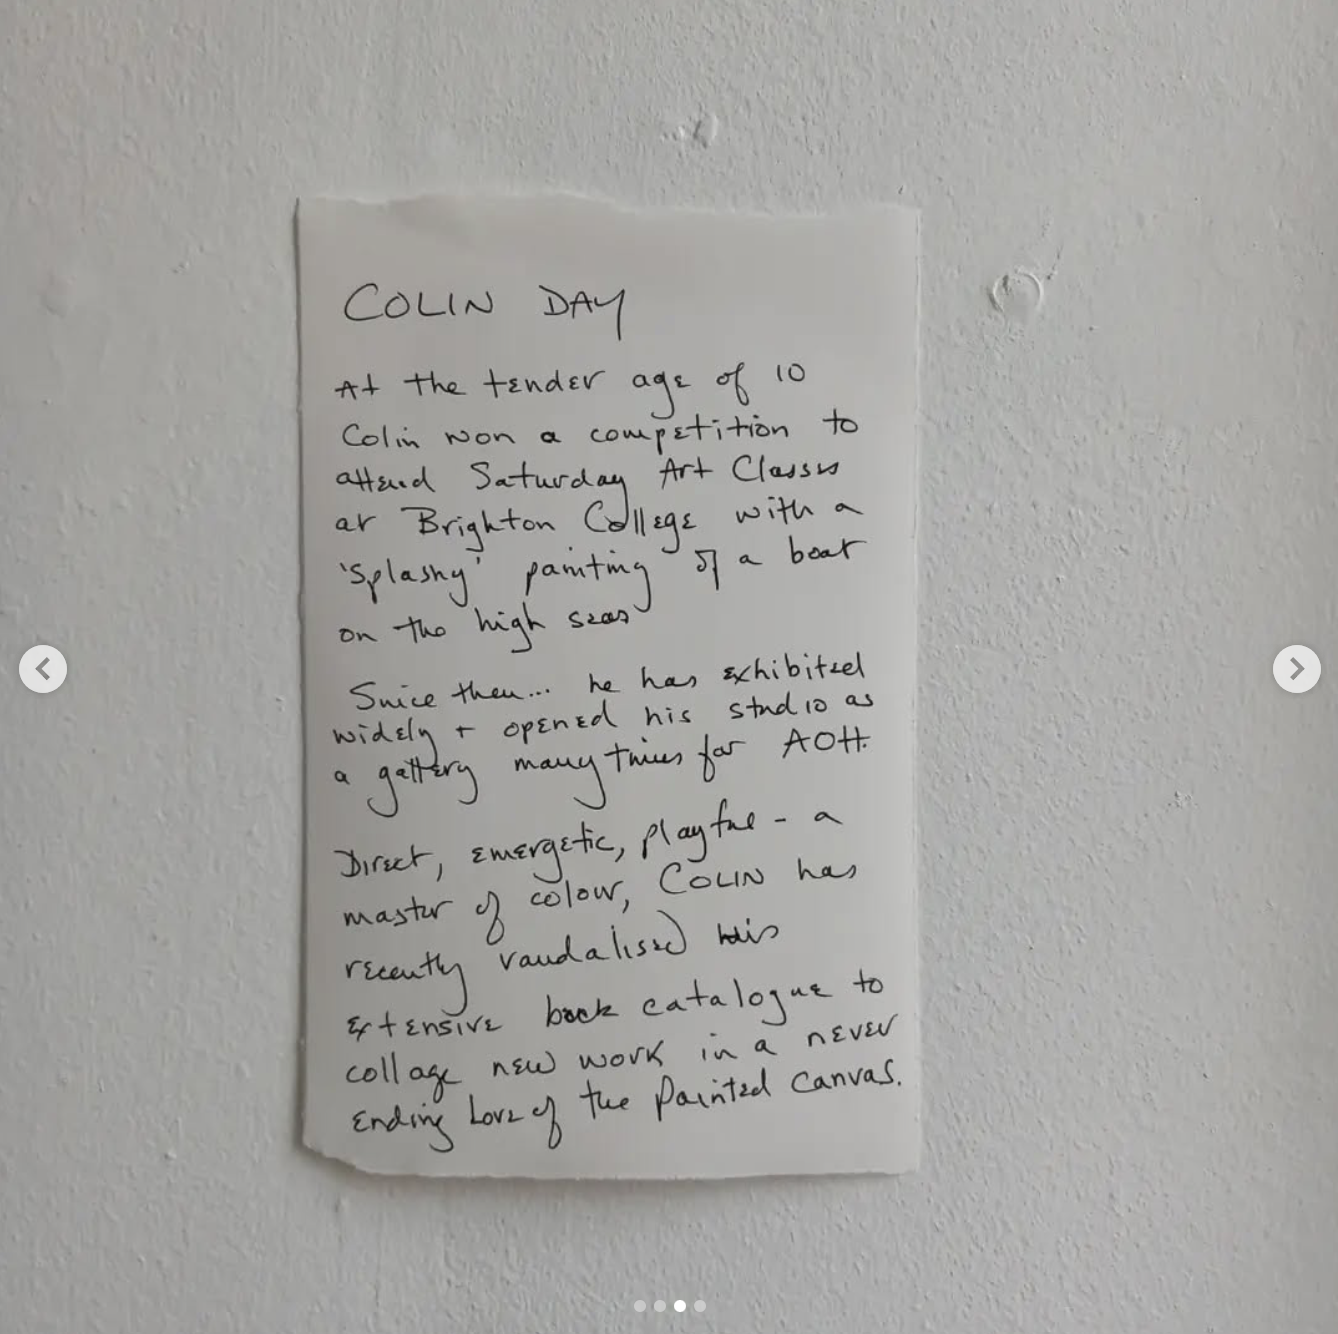 COLIN DAY
At the tender age of 10
Colin won a competition to
attend Saturday Art Classes
at Brighton College with a
'splashy' painting of a boat
on the high seas
Since then... he has exhibited
widely + opened his studio as
a gallery many times for AOH.
Direct, energetic, playful - a
master of colour, COLIN has
recently vandalised his
extensive back catalogue to
collage new work in a never
ending Love of the Painted Canvas.